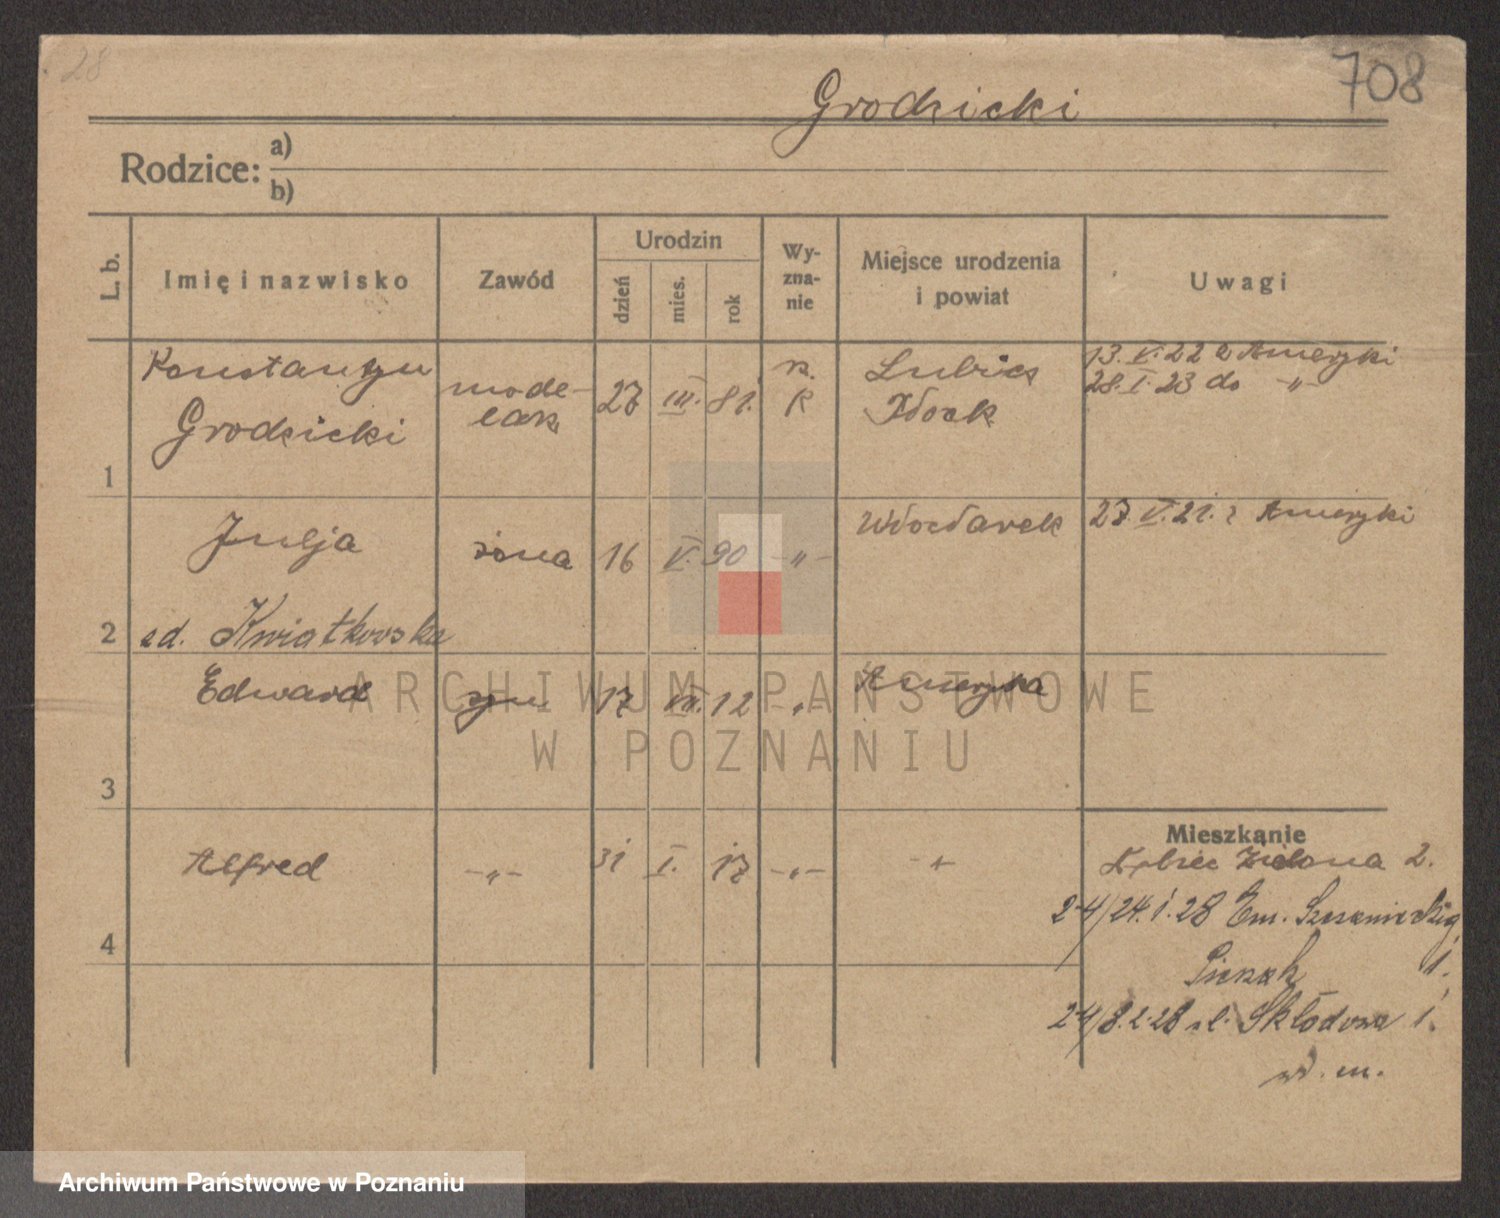 28
708
Grodzicki
Rodzice: a)
b)
L. b.
Imię i nazwisko
Zawód
Urodzin
dzień
mies.
rok
Wy-
zna-
nie
Miejsce urodzenia
i powiat
Uwagi
Konstantyn
Grodzicki
mode-
larz
27 III. 81.
rz.
K
Lubicz
13. V. 22 z Ameryki
28. I. 23 do -„-
1
Julja
zd. Kwiatkowska
żona
16 V. 90 -„-
Włocławek
27. V. 21. z Ameryki
2
Edward
syn
17 VII. 12 -„-
Ameryka
3
Alfred
-„-
31 I. 17 -„-
-„-
4
Mieszkanie
Zielona 2.
24/24. 1. 28 Em. Sczanieckiej
1.
24/8. 2. 28 ul. Składowa 1.
w. m.
ARCHIWUM PAŃSTWOWE
W POZNANIU
Archiwum Państwowe w Poznaniu